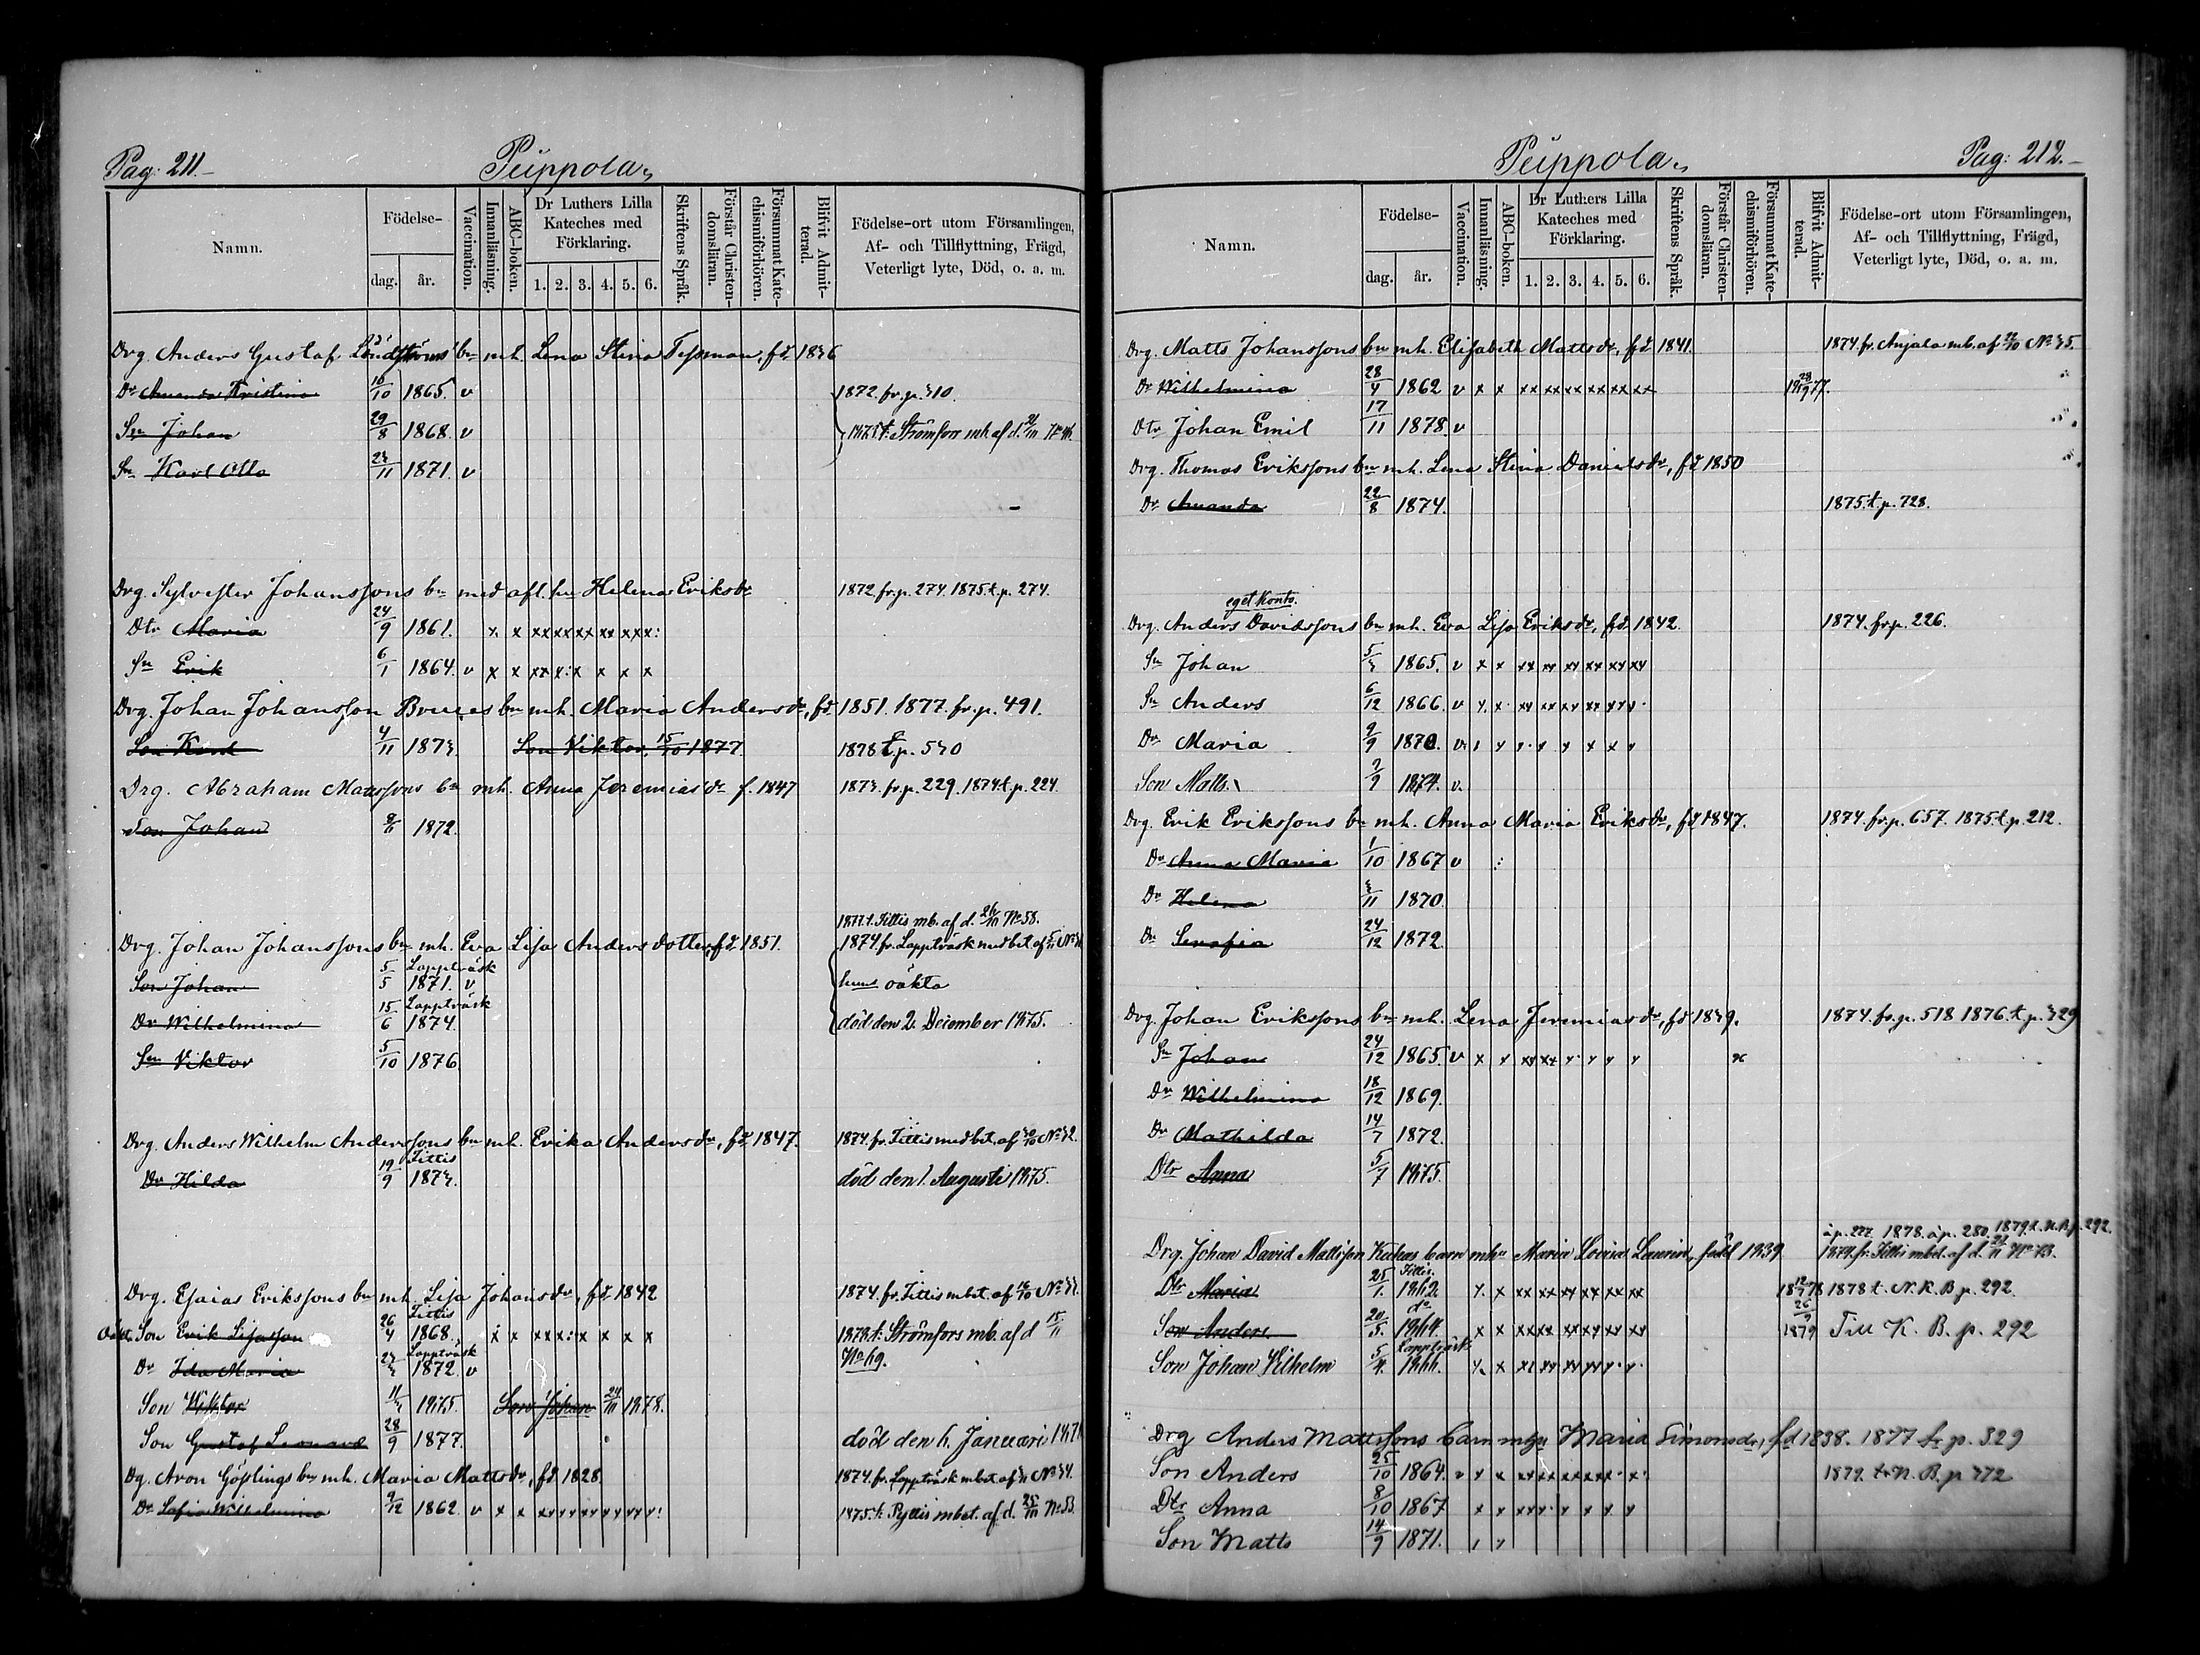 Pag: 211.
Peippola.
Namn.
Födelse-
dag. år.
Vaccination.
Innanläsning.
ABC-boken.
Dr Luthers Lilla Kateches med Förklaring.
1. 2. 3. 4. 5. 6.
Skriftens Språk.
Förstår Christendomsläran.
Försummat Katechismiförhören.
Blifvit Admitterad.
Födelse-ort utom Församlingen,
Af- och Tillflyttning, Frägd,
Veterligt lyte, Död, o. a. m.
Drg. Anders Gustaf bn mh. Lena Stina Tessman, fd. 1836
Dr Amanda Kristina 16/10 1865. v 1872. fr. p. 310.
Sn Johan 29/8 1868. v t. Strömfors mb. af d.
Sn Karl Otto 23/11 1871. v
Drg. Sylvester Johanssons bn med afl. hu Helena Eriksdr 1872. fr. p. 274. 1875. t. p. 274.
Dtr Maria 24/9 1861. x x xx xx xx xx xx xx:
Sn Erik 6/1 1864. v x x xx x: x x x x
Drg. Johan Johansson Bruces bn mh. Maria Andersdr, fd. 1851. 1877. fr. p. 491.
Son Konst 4/11 1873. Son Viktor, 15/10 1877 1878 t. p. 530
Drg. Abraham Matssons bn mh. Anna Jeremiasdr f. 1847 1873. fr. p. 229. 1874. t. p. 224.
Son Johan 8/6 1872.
1877. t. Sittis mb. af d. 26/10 No 58.
Drg. Johan Johanssons bn mh. Eva Lisa Andersdotter, fd. 1851. 1874. fr. Lappträsk med bet. af
Lappträsk
Son Johan 5/5 1871. v hennes oäkta
Lappträsk
Dr Wilhelmina 15/6 1874. död den 2. December 1875.
Sn Viktor 5/10 1876
Drg. Anders Wilhelm Anderssons bn mh. Erika Andersdr, fd. 1847. 1874. fr. Sittis med bet. af 30/10 No 32.
Sittis
Dr Hilda 19/9 1873. död den 1. Augusti 1875.
Drg. Esaias Erikssons bn mh. Lisa Johansdr, fd. 1842 1874. fr. Sittis mbet. af 16/10
Sittis
Oäkt. Son Erik Lisasson 26/4 1868. x x xx x: x x x x 1878. t. Strömfors mb. af d 15/11
No 69.
Lappträsk
Dr Ida Maria 1872. v
Son Viktor 11/3 1875. Son Johan 24/10 1878.
Son Gustaf Leonard 28/9 1877. död den 6. Januari
Dg. Aron Göplings bn mh. Maria Mattsdr, fd. 1828 1874. fr. Lappträsk mbet. af
Dr Sofia Wilhelmina 9/12 1862. v x x xx xx xx xx xx xx: 1875. t. Pyttis mbet. af d. 25/10 No 53.
Peippola.
Pag: 212.
Namn.
Födelse-
dag. år.
Vaccination.
Innanläsning.
ABC-boken.
Dr Luthers Lilla Kateches med Förklaring.
1. 2. 3. 4. 5. 6.
Skriftens Språk.
Förstår Christendomsläran.
Försummat Katechismiförhören.
Blifvit Admitterad.
Födelse-ort utom Församlingen,
Af- och Tillflyttning, Frägd,
Veterligt lyte, Död, o. a. m.
Drg. Matts Johanssons bn mh. Elisabeth Mattsdr, fd. 1841. 1874. fr. Anjala mb. af 22/10 No 35.
Dr Wilhelmina 28/4 1862 v x x xx xx xx xx xx xx
Dtr Johan Emil 17/11 1878. v
Drg. Thomas Erikssons bn mh. Lena Stina Danielsdr, fd 1850
Dr Amanda 22/8 1874. 1875. t. p. 728.
eget Konto.
Drg. Anders Davidssons bn mh. Eva Lisa Eriksdr, fd. 1842. 1874. fr. p. 226.
Sn Johan 5/3 1865. v x x xx xx xx xx xx xx
Sn Anders 6/12 1866. v x x xx xx xx xx xx x
Dr Maria 9/9 1870. v
Son Matts. 2/9 1874. v.
Drg. Erik Erikssons bn mh. Anna Maria Eriksdr, fd 1847. 1874. fr. p. 657. 1875. t. p. 212.
Dr Anna Maria 1/10 1867 v :
Dr Helena 3/11 1870.
Dr Serafia 24/12 1872
Drg. Johan Erikssons bn mh. Lena Jeremiasdr, fd 1839. 1874. fr. p. 518 1876. t. p. 329
Sn Johan 24/12 1865. v x x xx xx x x x x x
Dr Wilhelmina 18/12 1869.
Dr Mathilda 14/7 1872.
Dtr Anna 5/7 1875.
à p. 277. 1878. à p. 280. 1879 t. N. B. p. 292.
Drg. Johan David Mattsson Kuckas barn mhu Maria Lovisa Laurin, född 1839 fr. Sittis mbet. af d.
Sittis.
Dtr Maria 25/1. 1862. x x xx xx xx xx xx xx 1878 t. N. K. B p. 292.
do
Son Anders 20/5. 1864. x x xx xx xx xx xx xx 26/9 1879 Till K. B. p. 292
Lappträsk
Son Johan Vilhelm 5/4. 1866.
Drg Anders Mattssons barn mhu Maria Simonsdr, fd 1838. 1877 fr. p. 329
Son Anders 25/10 1864. v x x xx xx xx xx x x 1879. t. N. B. p 372
Dtr Anna 8/10 1867
Son Matts 14/9 1871.